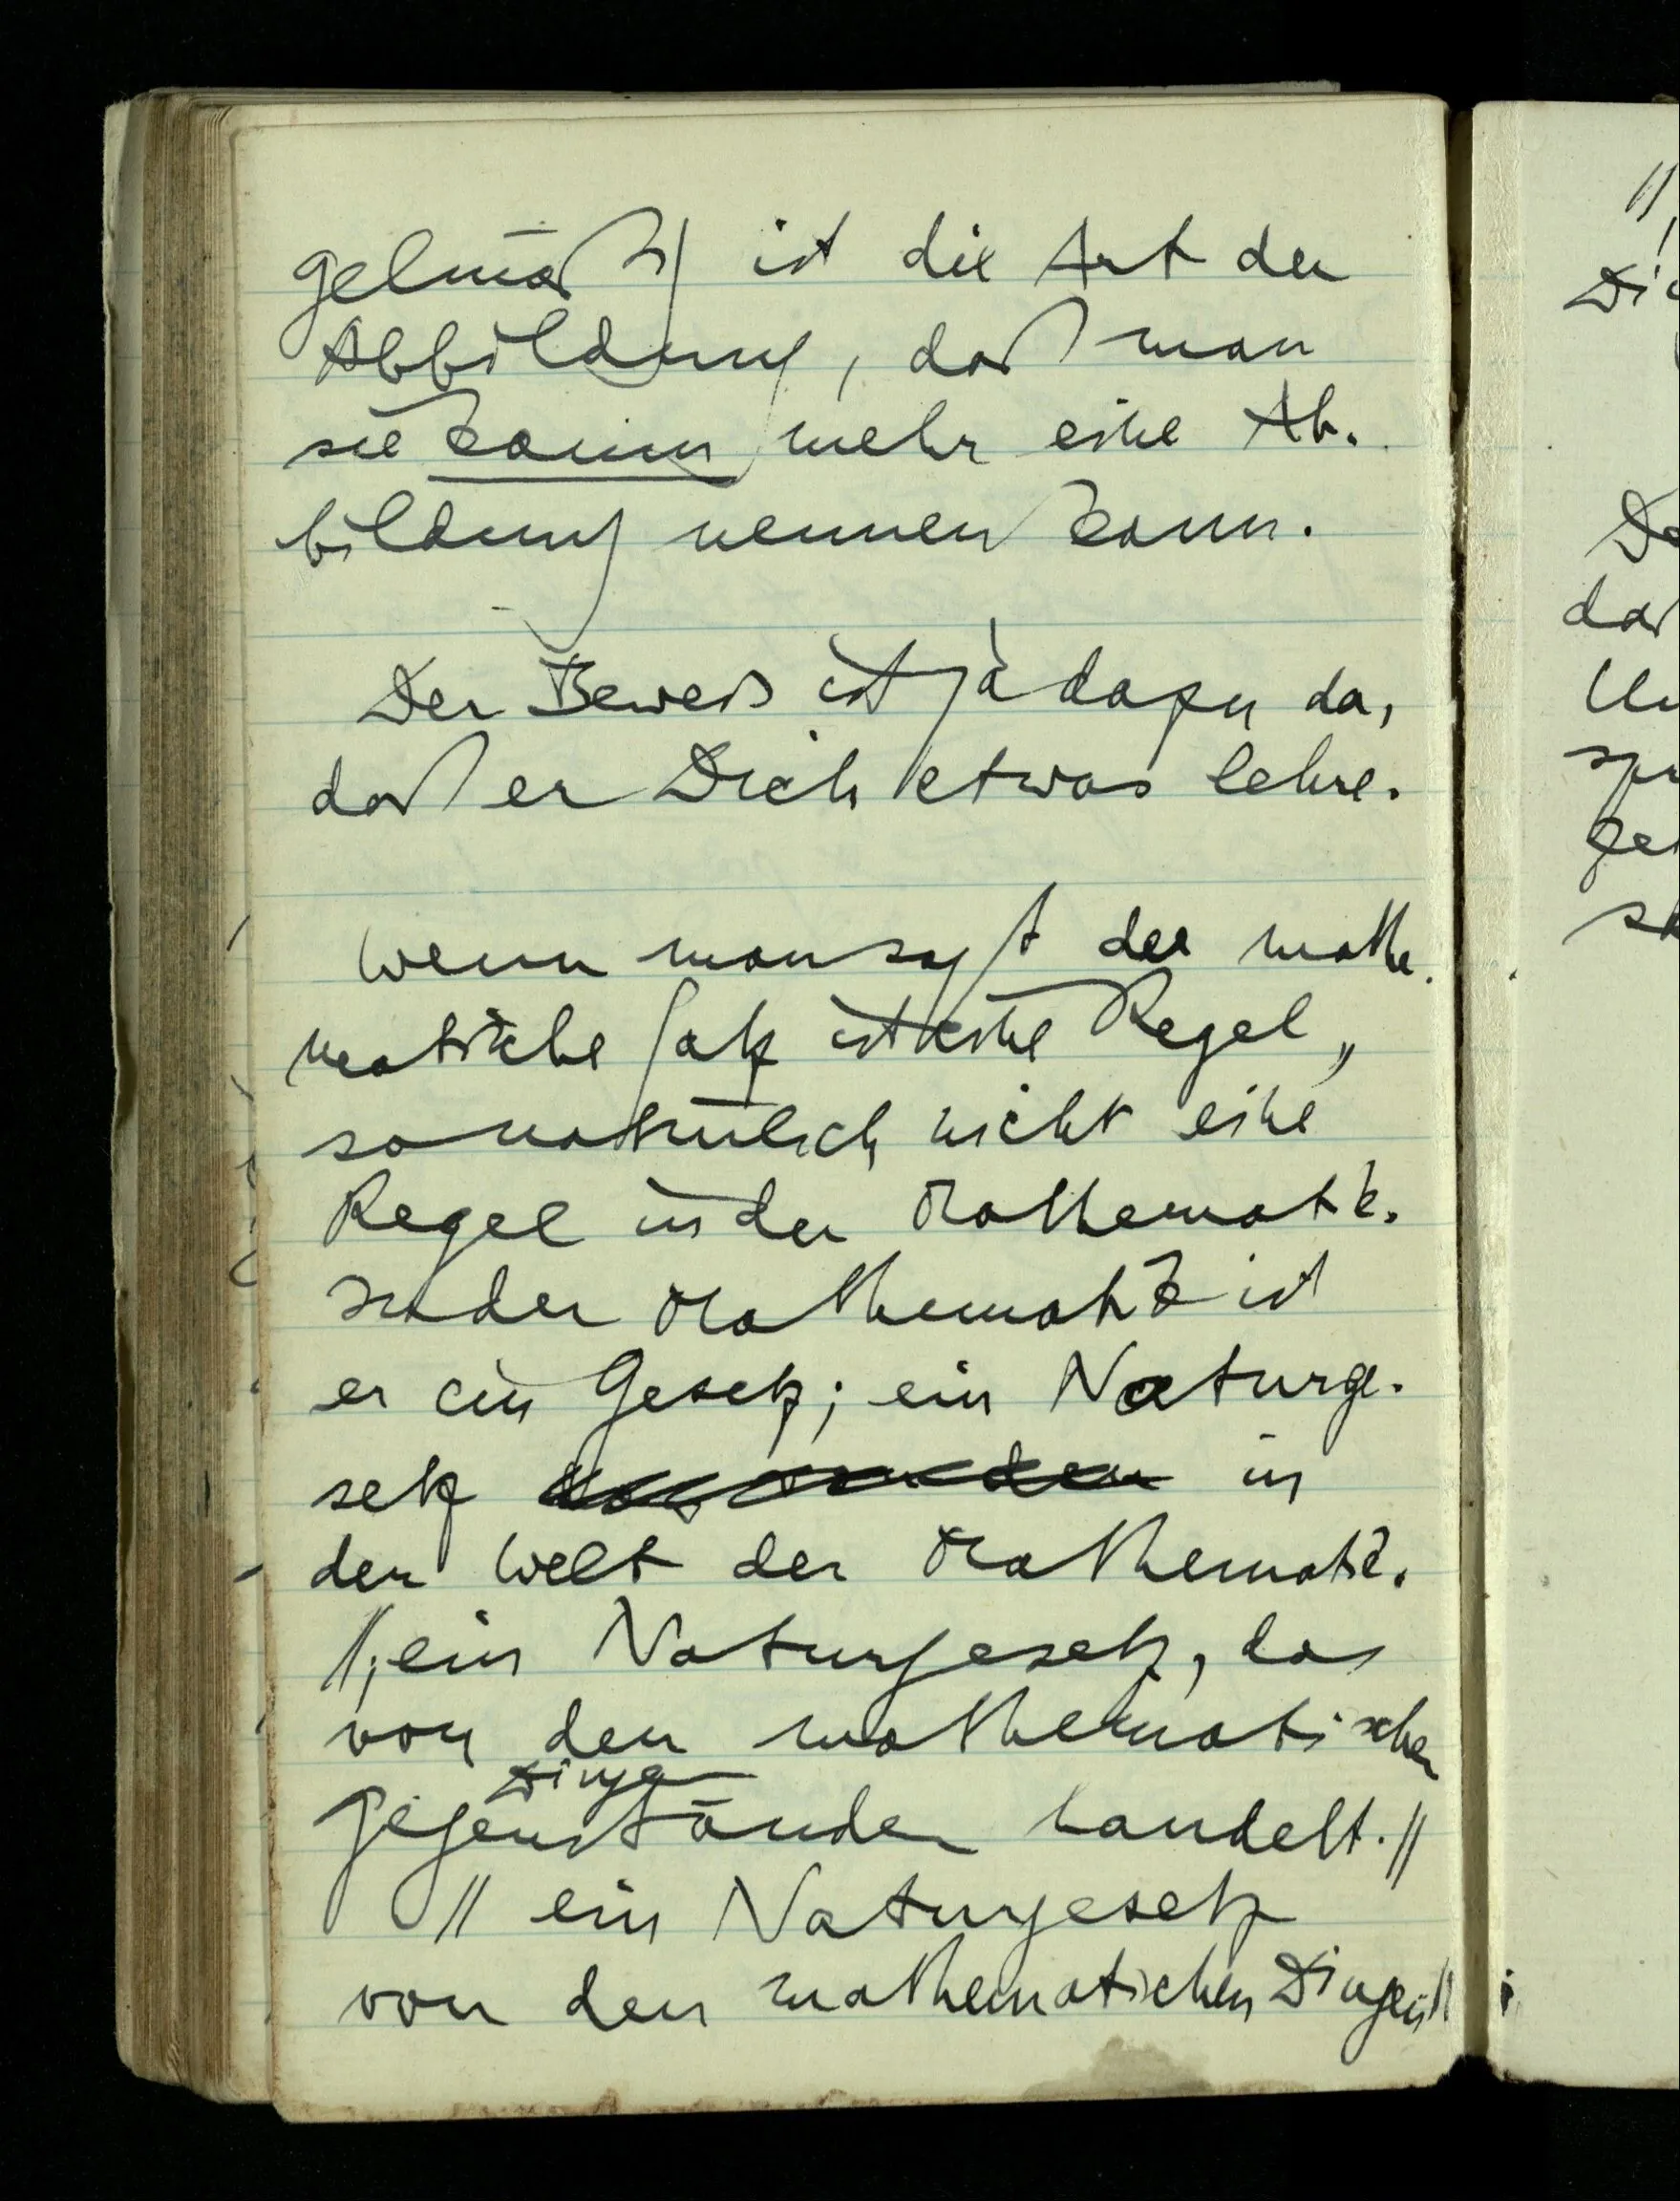 gelmäßig ist die Art der
Abbildung, daß man
sie kaum mehr eine Ab-
bildung nennen kann.
Der Beweis ist ja dazu da,
daß er Dich etwas lehre.
Wenn man sagt der mathe-
matische Satz ist eine Regel,
so natürlich nicht eine
Regel in der Mathematik.
In der Mathematik ist
er ein Gesetz; ein Naturge-
setz in
der Welt der Mathematik.
//; ein Naturgesetz, das
von den mathematischen
Dingen
Gegenständen handelt.//
// ein Naturgesetz
von den mathematischen Dingen//